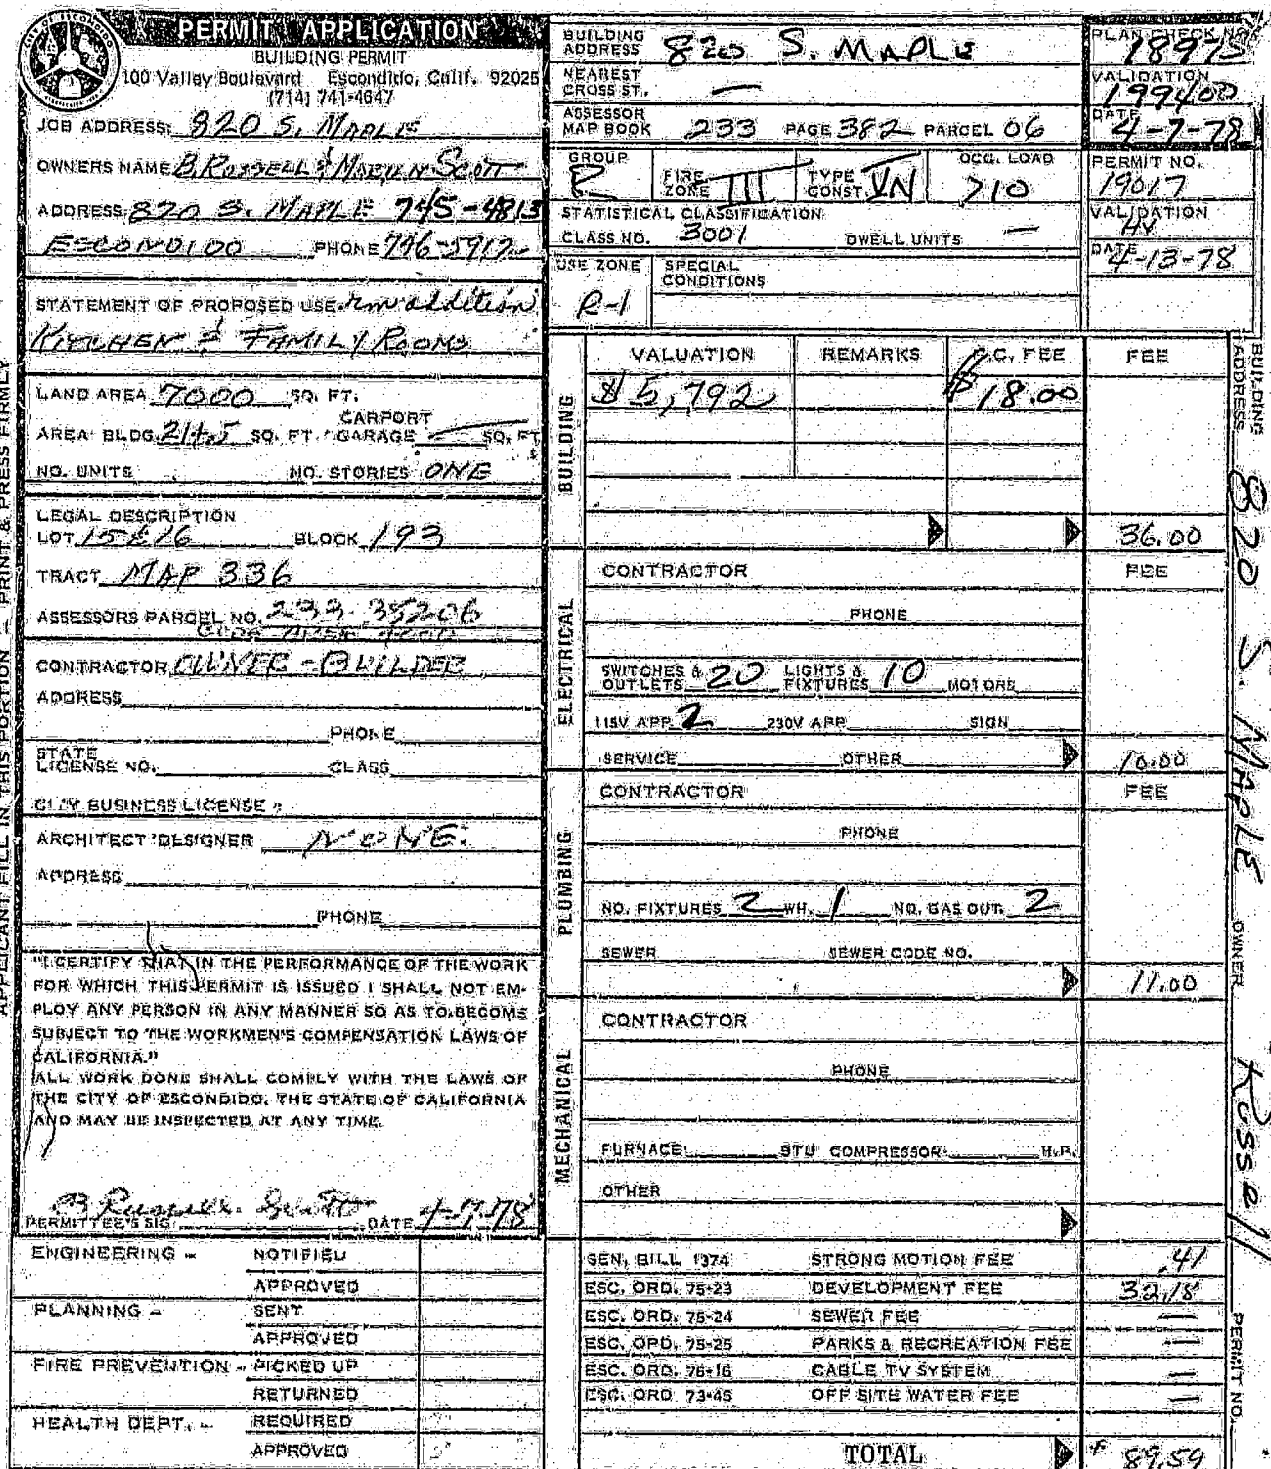 PERMIT APPLICATION
BUILDING PERMIT
100 Valley Boulevard Escondido, Calif. 92025
(714) 741-4647
JOB ADDRESS: 820 S. MAPLE
OWNERS NAME B. RUSSELL & MARILYN SCOTT
ADDRESS: 820 S. MAPLE 745-4813
ESCONDIDO PHONE 746-5912
STATEMENT OF PROPOSED USE rm addition
KITCHEN & FAMILY ROOMS
LAND AREA 7000 SQ. FT.
CARPORT
AREA BLDG. 214.5 SQ. FT. GARAGE — SQ. FT.
NO. UNITS NO. STORIES ONE
LEGAL DESCRIPTION
LOT 15 & 16 BLOCK 193
TRACT MAP 336
ASSESSORS PARCEL NO. 233-38206
CONTRACTOR OWNER - BUILDER
ADDRESS
PHONE
STATE
LICENSE NO. CLASS
CITY BUSINESS LICENSE #
ARCHITECT DESIGNER NONE.
ADDRESS
PHONE
"I CERTIFY THAT IN THE PERFORMANCE OF THE WORK
FOR WHICH THIS PERMIT IS ISSUED I SHALL NOT EM-
PLOY ANY PERSON IN ANY MANNER SO AS TO BECOME
SUBJECT TO THE WORKMEN'S COMPENSATION LAWS OF
CALIFORNIA."
ALL WORK DONE SHALL COMPLY WITH THE LAWS OF
THE CITY OF ESCONDIDO, THE STATE OF CALIFORNIA
AND MAY BE INSPECTED AT ANY TIME.
B Russell Scott
PERMITTEE'S SIG. DATE 4-7-78
ENGINEERING - NOTIFIED
APPROVED
PLANNING - SENT
APPROVED
FIRE PREVENTION - PICKED UP
RETURNED
HEALTH DEPT. - REQUIRED
APPROVED
APPLICANT FILL IN THIS PORTION - PRINT & PRESS FIRMLY
BUILDING
ADDRESS 820 S. MAPLE
NEAREST
CROSS ST. —
ASSESSOR
MAP BOOK 233 PAGE 382 PARCEL 06
GROUP R FIRE ZONE III TYPE CONST VN OCC. LOAD 710
STATISTICAL CLASSIFICATION
CLASS NO. 3001 DWELL UNITS —
USE ZONE R-1 SPECIAL CONDITIONS
PLAN CHECK NO.
18975
VALIDATION
199400
DATE
4-7-78
PERMIT NO.
19017
VALIDATION
HV
DATE
4-13-78
BUILDING
VALUATION REMARKS P.C. FEE FEE
$5,792 $18.00
36.00
ELECTRICAL
CONTRACTOR FEE
PHONE
SWITCHES & OUTLETS 20 LIGHTS & FIXTURES 10 MOTORS
115V APP. 2 230V APP. SIGN
SERVICE OTHER 10.00
PLUMBING
CONTRACTOR FEE
PHONE
NO. FIXTURES 2 WH. 1 NO. GAS OUT. 2
SEWER SEWER CODE NO.
11.00
MECHANICAL
CONTRACTOR
PHONE
FURNACE BTU COMPRESSOR H.P.
OTHER
SEN. BILL 1374 STRONG MOTION FEE .41
ESC. ORD. 75-23 DEVELOPMENT FEE 32.18
ESC. ORD. 75-24 SEWER FEE —
ESC. ORD. 75-25 PARKS & RECREATION FEE —
ESC. ORD. 76-16 CABLE TV SYSTEM —
ESC. ORD. 73-45 OFF SITE WATER FEE —
TOTAL $ 89.59
BUILDING ADDRESS 820 S. MAPLE OWNER Russell PERMIT NO.